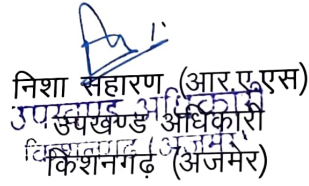 निशा सहारण (आर.ए.एस)
उपखण्ड अधिकारी
उपखण्ड अधिकारी
किशनगढ़ (अजमेर)